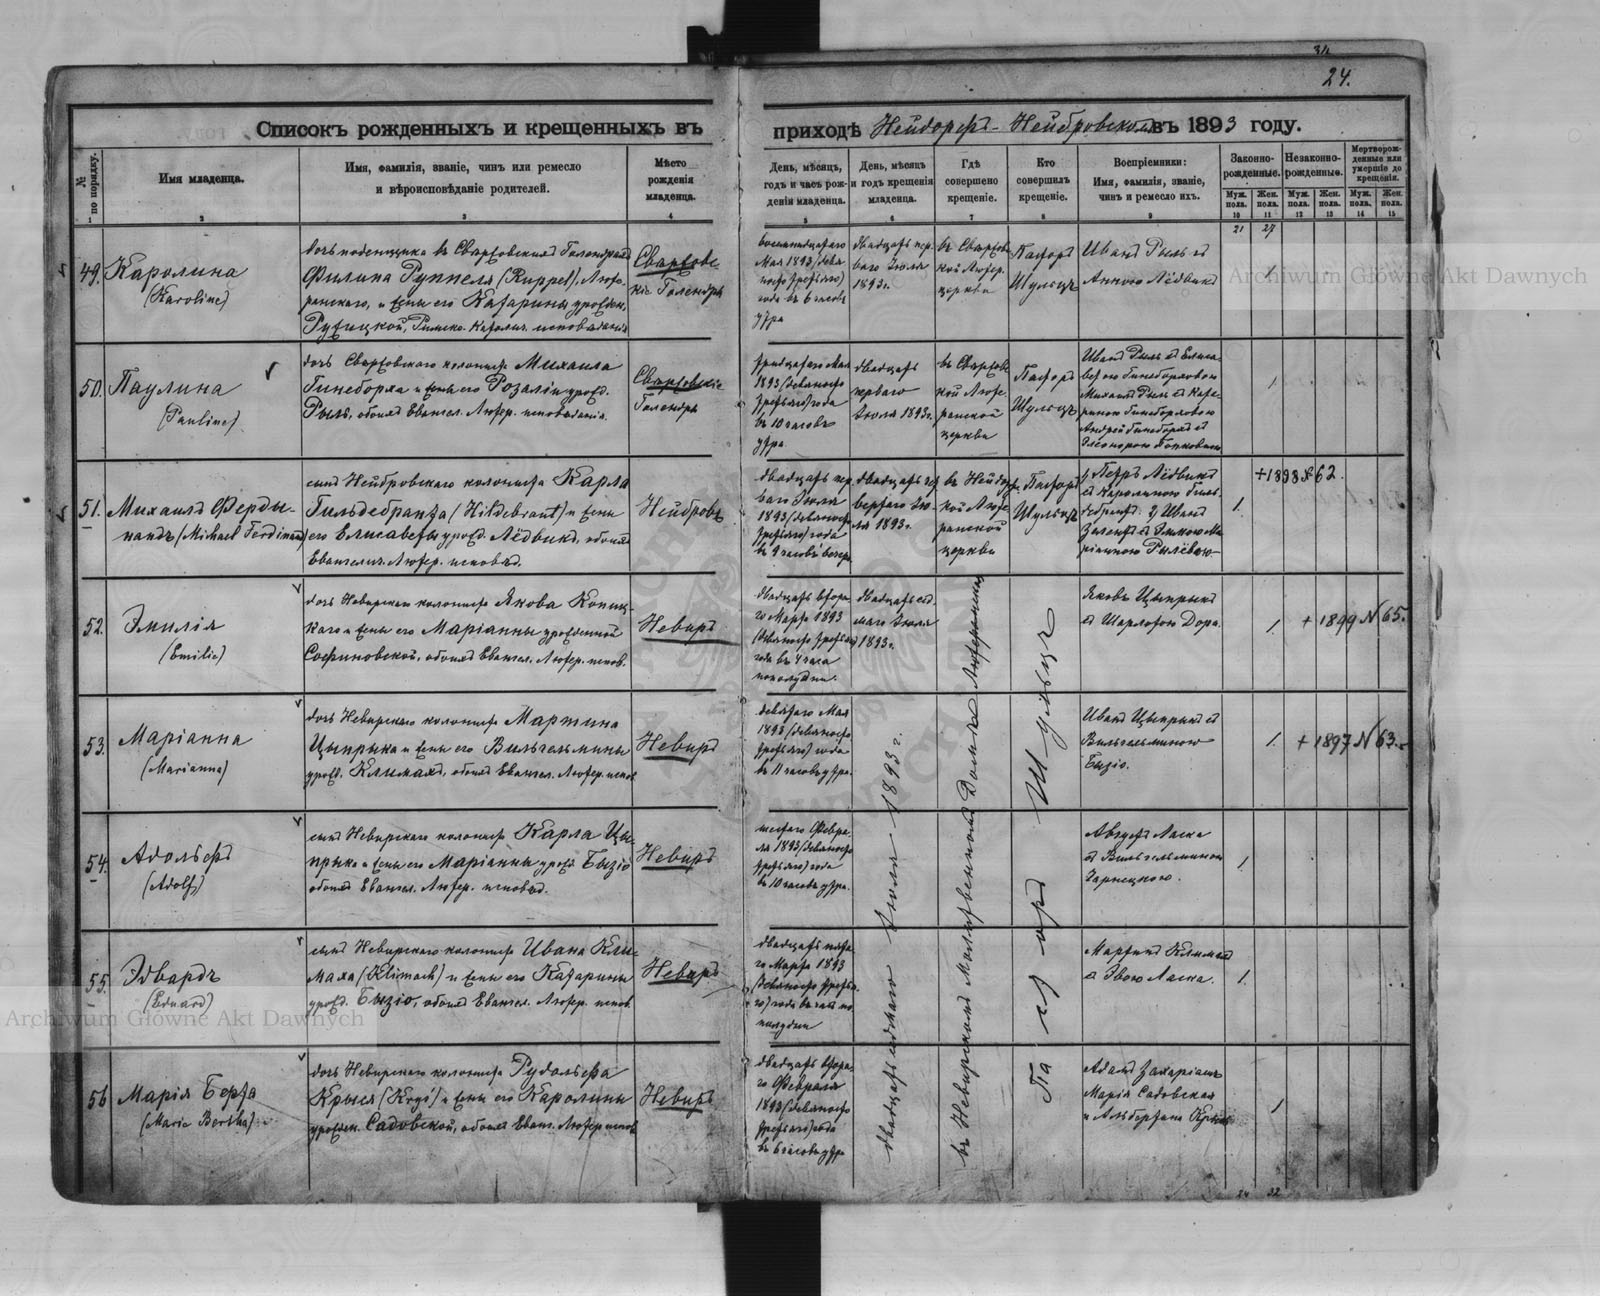 34
24.
Списокъ рожденныхъ и крещенныхъ въ
приходѣ Нейдорфъ-Нейбровскомъ въ 1893 году.
№ по порядку.
Имя младенца.
Имя, фамилія, званіе, чинъ или ремесло
и вѣроисповѣданіе родителей.
Мѣсто
рожденія
младенца.
День, мѣсяцъ,
годъ и часъ рож-
денія младенца.
День, мѣсяцъ
и годъ крещенія
младенца.
Гдѣ
совершено
крещеніе.
Кто
совершилъ
крещеніе.
Воспріемники:
Имя, фамилія, званіе,
чинъ и ремесло ихъ.
Законно-
рожденные.
Незаконно-
рожденные.
Мертворож-
денные или
умершіе до
крещенія.
Муж. пола.
Жен. пола.
Муж. пола.
Жен. пола.
Муж. пола.
Жен. пола.
1 2 3 4 5 6 7 8 9 10 11 12 13 14 15
21 27
49. Каролина
(Karoline)
дочь поденщика въ Свержовскихъ Голендрахъ
Филипа Руппеля (Ruppel), Люте-
ранскаго, и жены его Катарины урожден.
Римско-Католич. исповѣданія
Свержовс-
кіе Голендры
восемнадцатаго
Мая 1893 (девя-
носто третьяго)
года въ 6 часовъ
утра
двадцать пер-
ваго Іюля
1893 г.
въ Свержов-
ской Лютер.
церкви
Пасторъ
Шульцъ
Иванъ Рыль съ
Анною Лёдвикъ
1.
50. Паулина
(Pauline)
дочь Свержовскаго колониста Михаила
Гинеборха и жены его Розаліи урожд.
Рыль, обоихъ Евангел. Лютер. исповѣданія.
Свержовскіе
Голендры
тридцатаго Мая
1893 (девяносто
третьяго) года
въ 10 часовъ
утра
двадцать
перваго
Іюля 1893 г.
въ Свержов-
ской Люте-
ранской
церкви
Пасторъ
Шульцъ
Иванъ Рыль съ Елиса-
ветою Гинеборховою
Михаилъ Рыль съ Кате-
риною Гинеборховою
Андрей Гинеборхъ съ
1
51. Михаилъ Ферди-
нандъ (Michael Ferdinand)
сынъ Нейбровскаго колониста Карла
Гильдебранта (Hildebrant) и жены
его Елисаветы урожд. Лёдвикъ, обоихъ
Евангелич. Лютер. исповѣд.
Нейбровъ
двадцать пер-
ваго Іюля
1893 (девяносто
третьяго) года
въ 9 часовъ вечера
двадцать чет-
вертаго Ію-
ля 1893 г.
въ Нейдорф-
ской Люте-
ранской
церкви
Пасторъ
Шульцъ
1) Петръ Лёдвикъ
съ Каролиною Гиль-
дебрантъ. 2) Иванъ
1.
+1898 № 62.
52. Эмилія
(Emilie)
дочь Невирскаго колониста Якова Копиц-
каго и жены его Маріанны урожденной
Софиновской, обоихъ Евангел. Лютер. испов.
Невиръ
двадцать втора-
го Марта 1893
(девяносто третьяго)
года въ 4 часа
пополудни.
двадцать седь-
маго Іюля
1893 г.
Яковъ Цыпрыкъ
съ Шарлотою Дора.
1.
+ 1899 N 65.
53. Маріанна
(Marianna)
дочь Невирскаго колониста Мартина
Цыпрыка и жены его Вильгельмины
урожд. Климахъ, обоихъ Евангел. Лютер. испов.
Невиръ
девятаго Мая
1893 (девяносто
третьяго) года
въ 11 часовъ утра.
Иванъ Цыпрыкъ съ
Вильгельминою
Бызіо.
1.
+ 1897 N 63.
54. Адольфъ
(Adolf)
сынъ Невирскаго колониста Карла Цы-
прыка и жены его Маріанны урожд. Бызіо
обоихъ Евангел. Лютер. исповѣд.
Невиръ
шестаго Февра-
ля 1893 (девяносто
третьяго) года
въ 10 часовъ утра.
Августъ Ласка
съ Вильгельминою
Зарнецкою.
1
55. Эдвардъ
(Eduard)
сынъ Невирскаго колониста Ивана Кли-
маха (Klimach) и жены его Катарины
урожд. Бызіо, обоихъ Евангел. Лютер. испов.
Невиръ
двадцать пята-
го Марта 1893
(девяносто третья-
го) года въ часъ по
полудни
Мартинъ Климахъ
съ Эвою Ласка.
1.
56 Марія Берта
(Marie Bertha)
дочь Невирскаго колониста Рудольфа
Крыся (Krys) и жены его Каролины
урожден. Садовской, обоихъ Еванг. Лютер. испов.
Невиръ
двадцать втора-
го Февраля
1893 (девяносто
третьяго) года
въ 6 часовъ утра
Адамъ Захаріашъ
Марія Садовская
1
двадцать седьмаго Іюля 1893 г.
въ Невирскомъ Молитвенномъ Домѣ Лютеранскомъ
Пасторъ Шульцъ
24 32
Archiwum Główne Akt Dawnych
Archiwum Główne Akt Dawnych